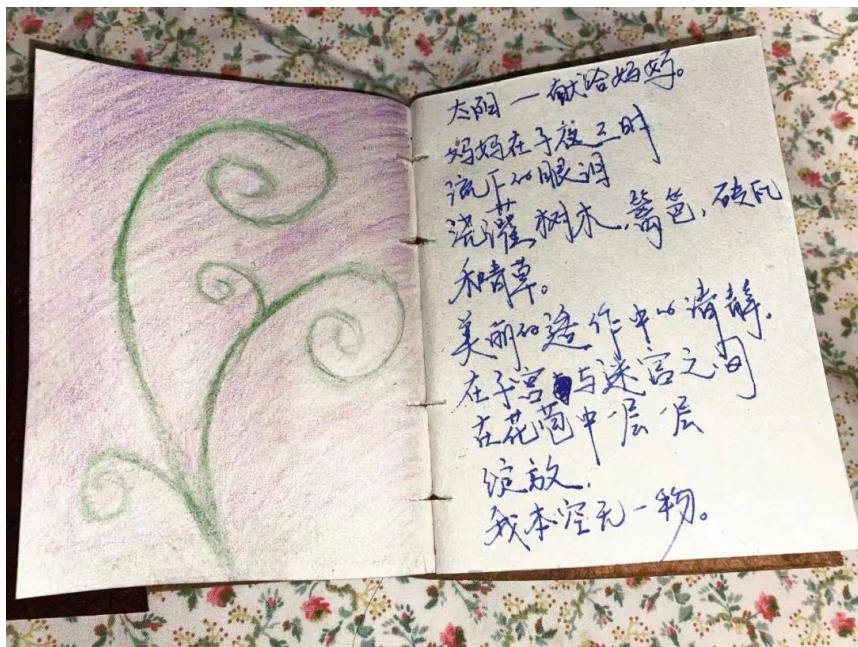 太阳—献给妈妈。
妈妈在子夜三时
流下的眼泪
浇灌树木,篱笆,砖瓦
和青草。
美丽的造作中的清静。
在子宫与迷宫之间
在花苞中一层一层
绽放,
我本空无一物。